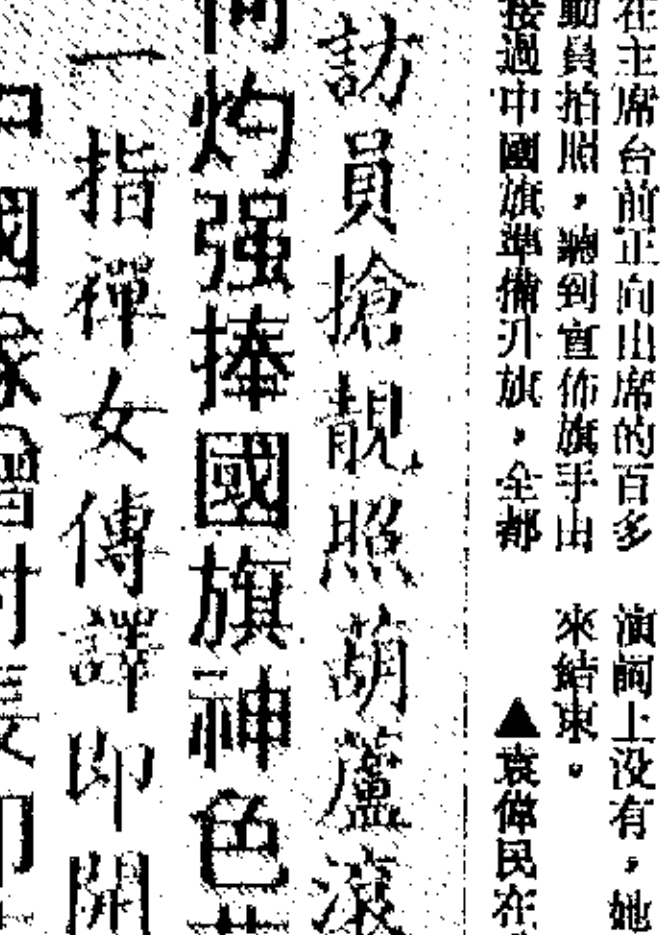 在主席台前正向出席的百多
動員拍照，聽到宣佈旗手由
接過中國旗準備升旗，全都
演詞上没有，她
來結束。
▲袁偉民在
訪員搶靚照胡蘆滾
灼强捧國旗神色
一指禪女傳譯即開